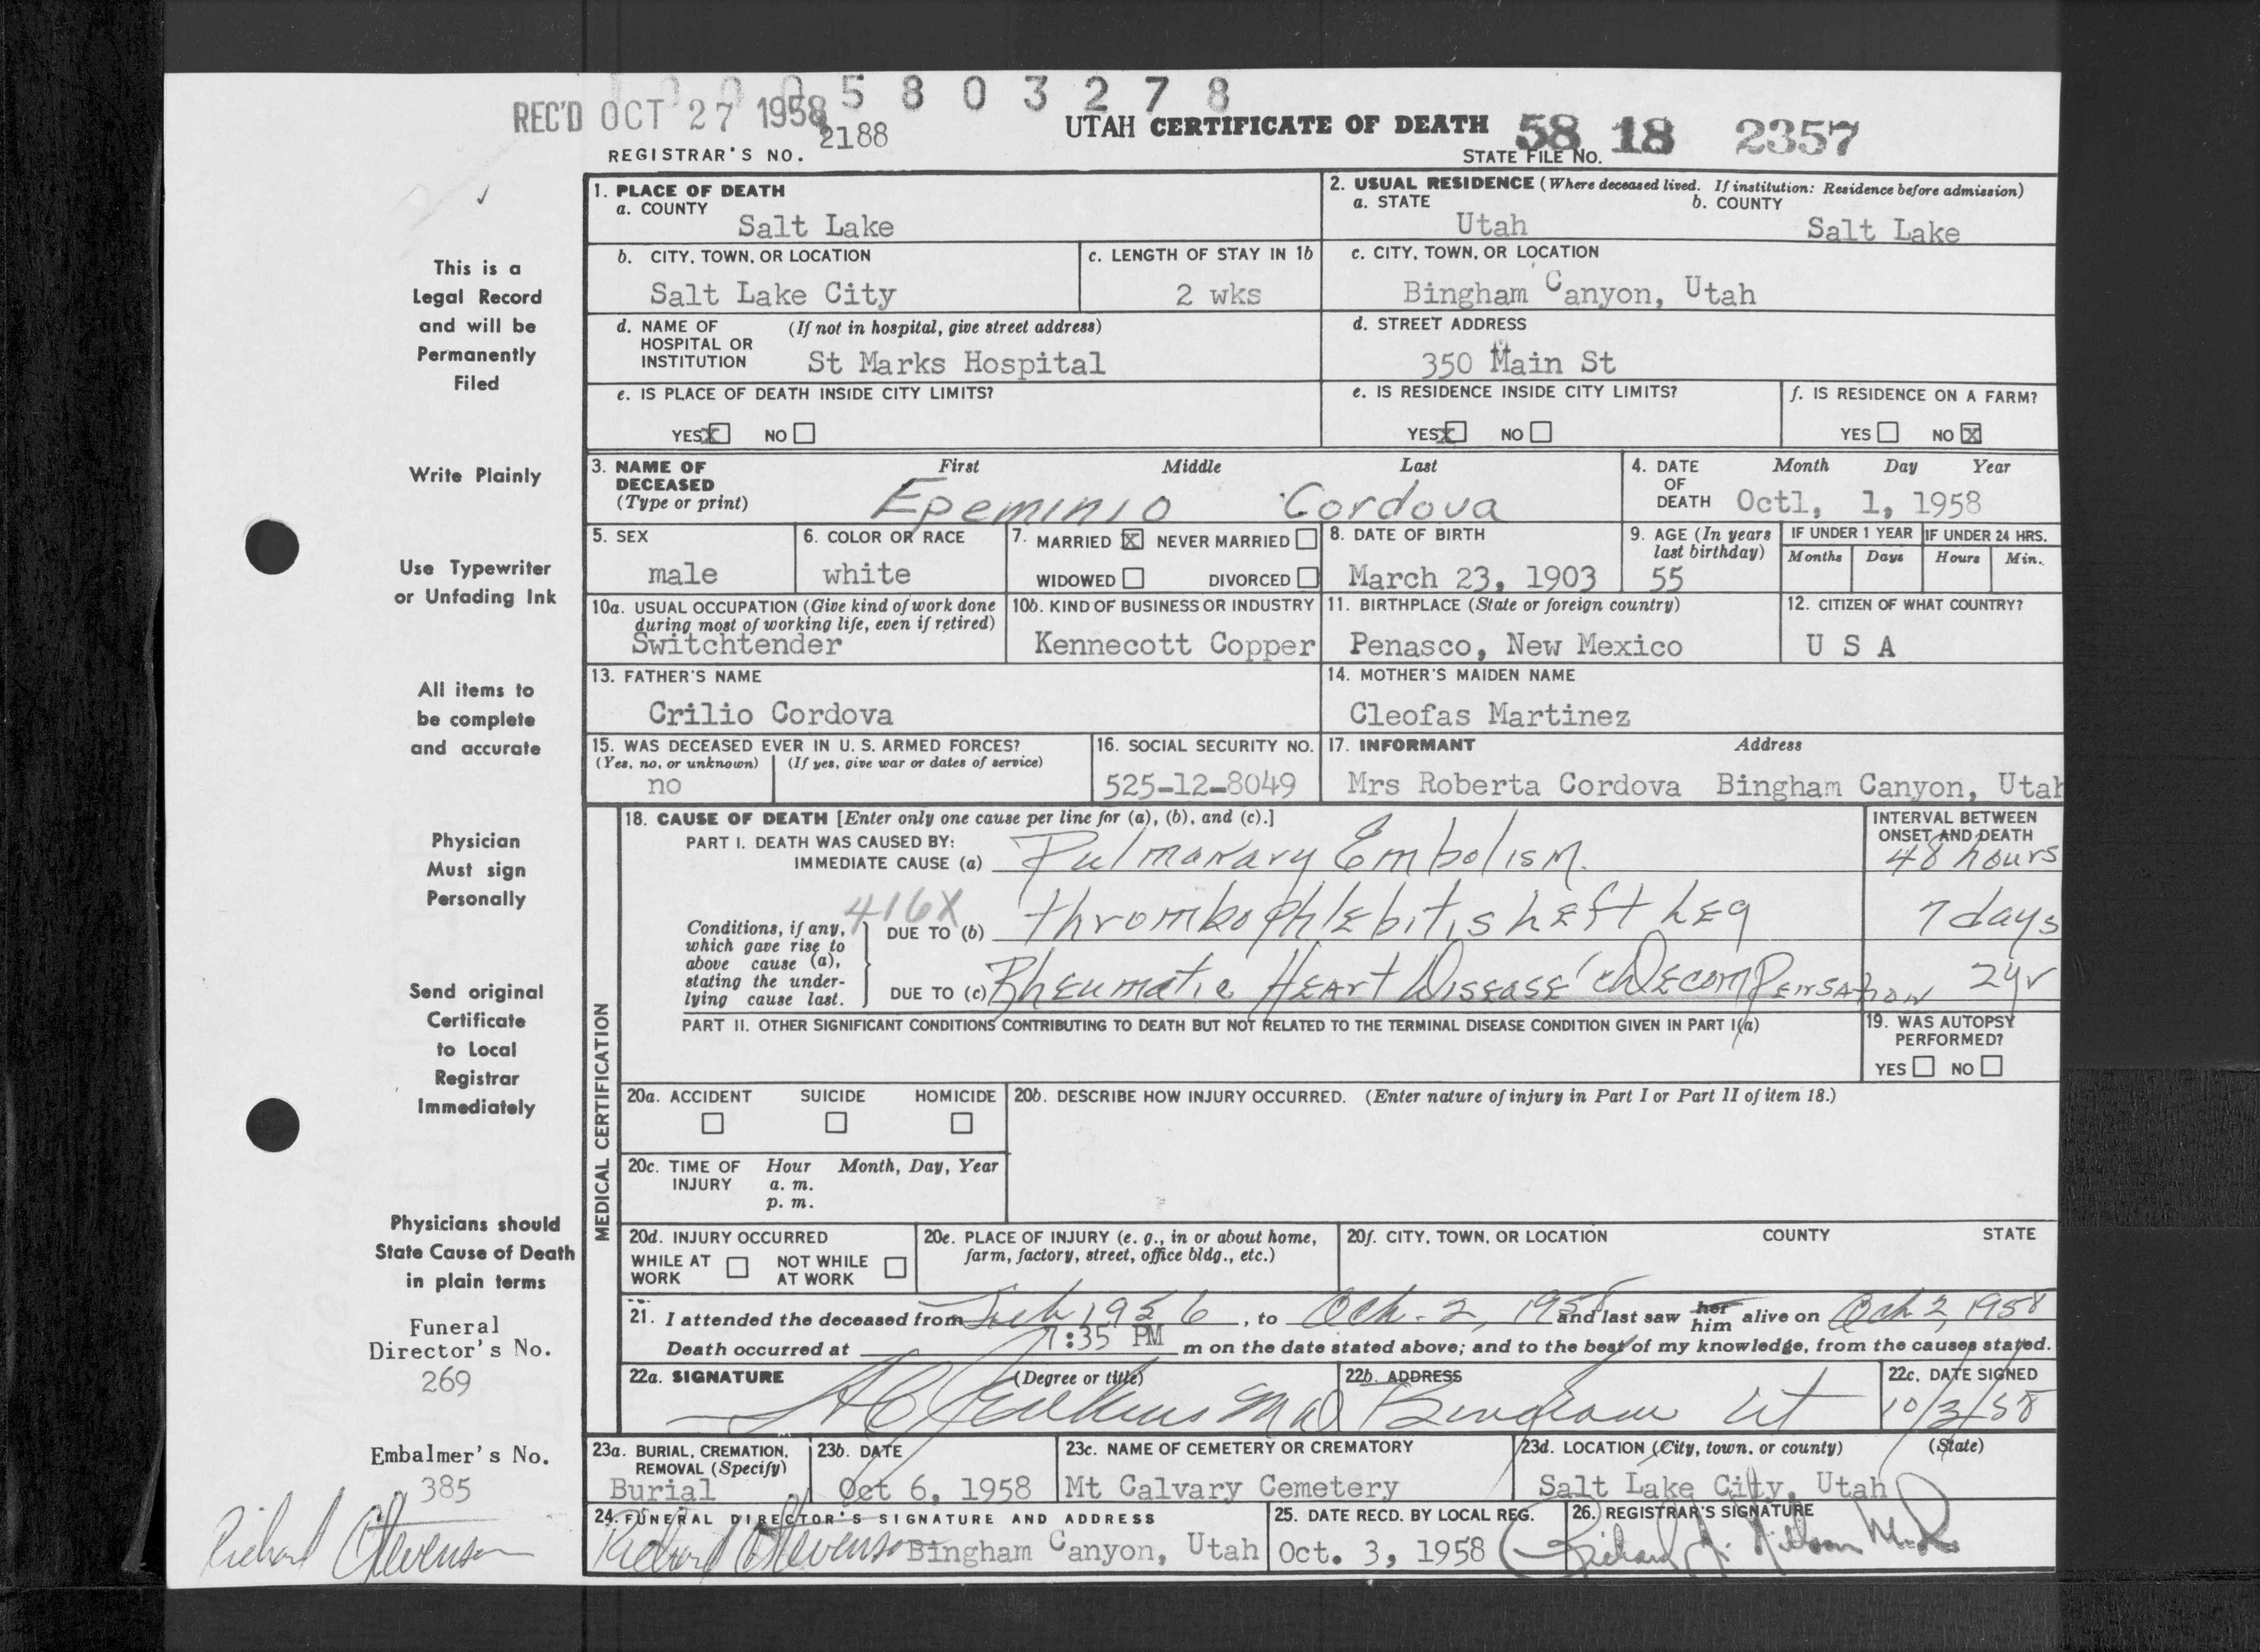 0 0 0 5 8 0 3 2 7 8
REC'D OCT 27 1958
2188
REGISTRAR'S NO.
UTAH CERTIFICATE OF DEATH
58 18 2357
STATE FILE NO.
This is a
Legal Record
and will be
Permanently
Filed
Write Plainly
Use Typewriter
or Unfading Ink
All items to
be complete
and accurate
Physician
Must sign
Personally
Send original
Certificate
to Local
Registrar
Immediately
Physicians should
State Cause of Death
in plain terms
Funeral
Director's No.
269
Embalmer's No.
385
Richard Stevenson
1. PLACE OF DEATH
a. COUNTY
Salt Lake
2. USUAL RESIDENCE (Where deceased lived. If institution: Residence before admission)
a. STATE
Utah
b. COUNTY
Salt Lake
b. CITY, TOWN, OR LOCATION
Salt Lake City
c. LENGTH OF STAY IN 1b
2 wks
c. CITY, TOWN, OR LOCATION
Bingham Canyon, Utah
d. NAME OF HOSPITAL OR INSTITUTION
(If not in hospital, give street address)
St Marks Hospital
d. STREET ADDRESS
350 Main St
e. IS PLACE OF DEATH INSIDE CITY LIMITS?
YES X NO
e. IS RESIDENCE INSIDE CITY LIMITS?
YES X NO
f. IS RESIDENCE ON A FARM?
YES NO X
3. NAME OF DECEASED
(Type or print)
First Middle Last
Epeminio Cordova
4. DATE OF DEATH
Month Day Year
Octl, 1, 1958
5. SEX
male
6. COLOR OR RACE
white
7. MARRIED X NEVER MARRIED
WIDOWED DIVORCED
8. DATE OF BIRTH
March 23, 1903
9. AGE (In years last birthday)
55
IF UNDER 1 YEAR
Months Days
IF UNDER 24 HRS.
Hours Min.
10a. USUAL OCCUPATION (Give kind of work done
during most of working life, even if retired)
Switchtender
10b. KIND OF BUSINESS OR INDUSTRY
Kennecott Copper
11. BIRTHPLACE (State or foreign country)
Penasco, New Mexico
12. CITIZEN OF WHAT COUNTRY?
U S A
13. FATHER'S NAME
Crilio Cordova
14. MOTHER'S MAIDEN NAME
Cleofas Martinez
15. WAS DECEASED EVER IN U. S. ARMED FORCES?
(Yes, no, or unknown) (If yes, give war or dates of service)
no
16. SOCIAL SECURITY NO.
525-12-8049
17. INFORMANT Address
Mrs Roberta Cordova Bingham Canyon, Utah
MEDICAL CERTIFICATION
18. CAUSE OF DEATH [Enter only one cause per line for (a), (b), and (c).]
PART I. DEATH WAS CAUSED BY:
IMMEDIATE CAUSE (a) Pulmonary Embolism
INTERVAL BETWEEN
ONSET AND DEATH
48 hours
416X
Conditions, if any,
which gave rise to
above cause (a),
stating the under-
lying cause last.
DUE TO (b) thrombophlebitis Left Leg
7 days
DUE TO (c) Rheumatic Heart Disease c Decompensation
2 yr
PART II. OTHER SIGNIFICANT CONDITIONS CONTRIBUTING TO DEATH BUT NOT RELATED TO THE TERMINAL DISEASE CONDITION GIVEN IN PART I(a)
19. WAS AUTOPSY
PERFORMED?
YES NO
20a. ACCIDENT SUICIDE HOMICIDE
20b. DESCRIBE HOW INJURY OCCURRED. (Enter nature of injury in Part I or Part II of item 18.)
20c. TIME OF INJURY
Hour Month, Day, Year
a. m.
p. m.
20d. INJURY OCCURRED
WHILE AT WORK NOT WHILE AT WORK
20e. PLACE OF INJURY (e. g., in or about home,
farm, factory, street, office bldg., etc.)
20f. CITY, TOWN, OR LOCATION COUNTY STATE
21. I attended the deceased from Feb 1956, to Oct. 2, 1958 and last saw her him alive on Oct 2, 1958
Death occurred at 7:35 PM m on the date stated above; and to the best of my knowledge, from the causes stated.
22a. SIGNATURE (Degree or title)
22b. ADDRESS
Bingham Ut
22c. DATE SIGNED
10/3/58
23a. BURIAL, CREMATION,
REMOVAL (Specify)
Burial
23b. DATE
Oct 6, 1958
23c. NAME OF CEMETERY OR CREMATORY
Mt Calvary Cemetery
23d. LOCATION (City, town, or county) (State)
Salt Lake City, Utah
24. FUNERAL DIRECTOR'S SIGNATURE AND ADDRESS
Richard Stevenson Bingham Canyon, Utah
25. DATE RECD. BY LOCAL REG.
Oct. 3, 1958
26. REGISTRAR'S SIGNATURE